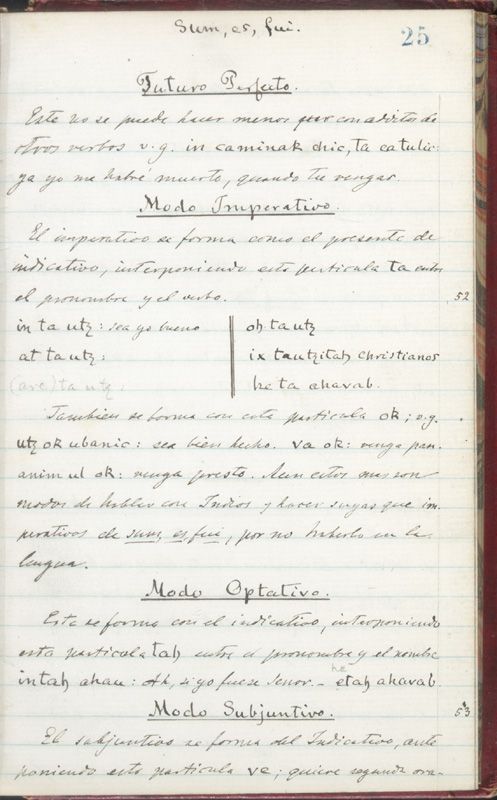 Sum, es, fui.
25
Futuro Perfecto.
Este no se puede hacer menos que con aditos de
otros verbos v.g. in caminak chic, ta catulic:
ya yo me habré muerto, quando tu vengas.
Modo Imperativo.
El imperativo se forma como el presente de
indicativo, interponiendo esta particula ta entre
el pronombre y el verbo.
52
in ta utz: sea yo bueno
oh ta utz
at ta utz:
ix ta utz itah christianos
(are) ta utz.
he ta ahavab.
Tambien se forma con esta particula ok; v.g.
utz ok ubanic: sea bien hecho. va ok: venga pan.
anim ul ok: venga presto. Aun estos mas son
modos de hablar con Indios y hacer suyas que im-
perativos de sum, es fui, por no haberlo en la
lengua.
Modo Optativo.
Este se forma con el indicativo, interponiendo
esta particula tah entre el pronombre y el nombre
he
in tah ahau: Ah, si yo fuese Senor. - e tah ahavab.
Modo Subjuntivo.
53
El subjuntivo se forma del Indicativo, ante
poniendo esta particula ve; quiere segunda ora-